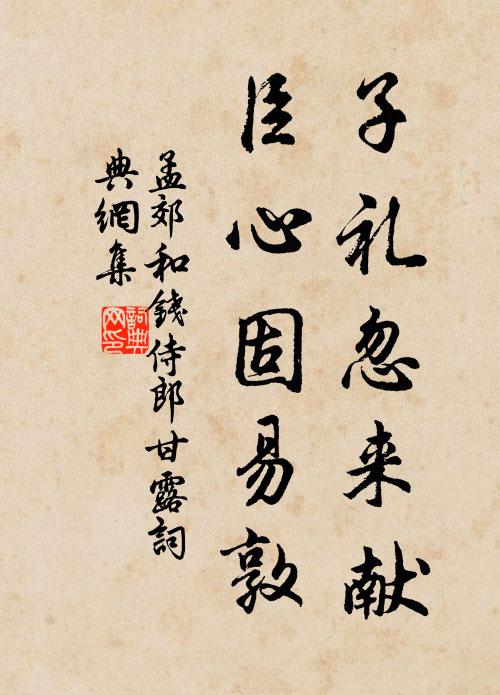 子礼忽来献
臣心固易敦
孟郊和錢侍郎甘露詞
典網集
詞典
网印